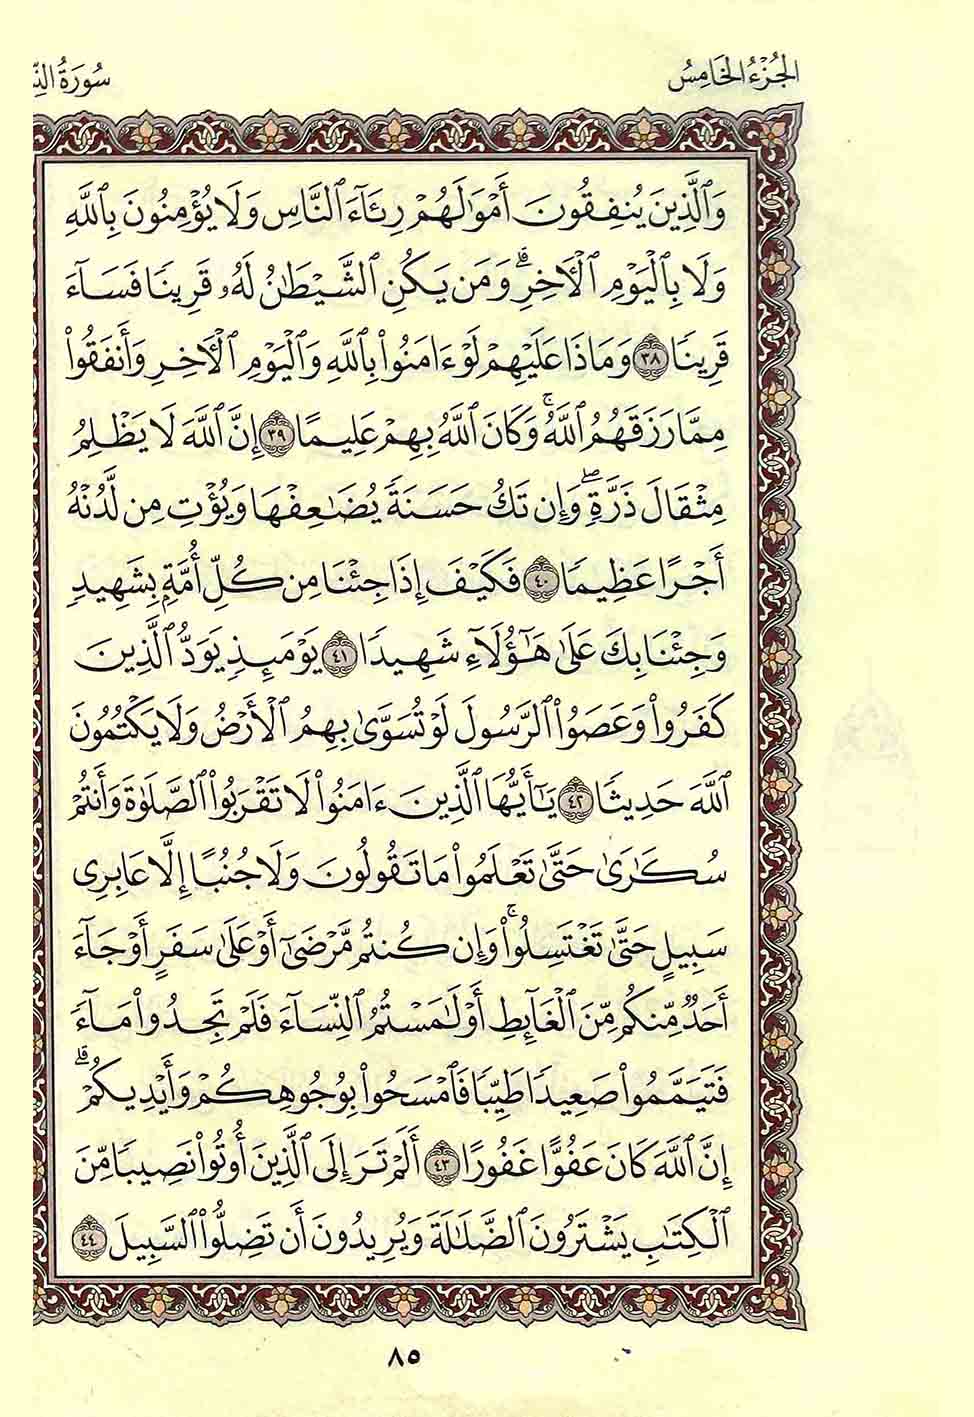 الجُزْءُ الخَامِسُ
سُورَةُ
وَٱلَّذِينَ يُنفِقُونَ أَمْوَٰلَهُمْ رِئَآءَ ٱلنَّاسِ وَلَا يُؤْمِنُونَ بِٱللَّهِ
وَلَا بِٱلْيَوْمِ ٱلْأَخِرِ ۗ وَمَن يَكُنِ ٱلشَّيْطَٰنُ لَهُۥ قَرِينًا فَسَآءَ
قَرِينًا ٣٨ وَمَاذَا عَلَيْهِمْ لَوْ ءَامَنُوا۟ بِٱللَّهِ وَٱلْيَوْمِ ٱلْأَخِرِ وَأَنفَقُوا۟
مِمَّا رَزَقَهُمُ ٱللَّهُ ۚ وَكَانَ ٱللَّهُ بِهِمْ عَلِيمًا ٣٩ إِنَّ ٱللَّهَ لَا يَظْلِمُ
مِثْقَالَ ذَرَّةٍ ۖ وَإِن تَكُ حَسَنَةً يُضَٰعِفْهَا وَيُؤْتِ مِن لَّدُنْهُ
أَجْرًا عَظِيمًا ٤٠ فَكَيْفَ إِذَا جِئْنَا مِن كُلِّ أُمَّةٍۭ بِشَهِيدٍ
وَجِئْنَا بِكَ عَلَىٰ هَٰٓؤُلَآءِ شَهِيدًا ٤١ يَوْمَئِذٍ يَوَدُّ ٱلَّذِينَ
كَفَرُوا۟ وَعَصَوُا۟ ٱلرَّسُولَ لَوْ تُسَوَّىٰ بِهِمُ ٱلْأَرْضُ وَلَا يَكْتُمُونَ
ٱللَّهَ حَدِيثًا ٤٢ يَٰٓأَيُّهَا ٱلَّذِينَ ءَامَنُوا۟ لَا تَقْرَبُوا۟ ٱلصَّلَوٰةَ وَأَنتُمْ
سُكَٰرَىٰ حَتَّىٰ تَعْلَمُوا۟ مَا تَقُولُونَ وَلَا جُنُبًا إِلَّا عَابِرِى
سَبِيلٍ حَتَّىٰ تَغْتَسِلُوا۟ ۚ وَإِن كُنتُم مَّرْضَىٰٓ أَوْ عَلَىٰ سَفَرٍ أَوْ جَآءَ
أَحَدٌ مِّنكُم مِّنَ ٱلْغَآئِطِ أَوْ لَٰمَسْتُمُ ٱلنِّسَآءَ فَلَمْ تَجِدُوا۟ مَآءً
فَتَيَمَّمُوا۟ صَعِيدًا طَيِّبًا فَٱمْسَحُوا۟ بِوُجُوهِكُمْ وَأَيْدِيكُمْ ۗ
إِنَّ ٱللَّهَ كَانَ عَفُوًّا غَفُورًا ٤٣ أَلَمْ تَرَ إِلَى ٱلَّذِينَ أُوتُوا۟ نَصِيبًا مِّنَ
ٱلْكِتَٰبِ يَشْتَرُونَ ٱلضَّلَٰلَةَ وَيُرِيدُونَ أَن تَضِلُّوا۟ ٱلسَّبِيلَ ٤٤
٨٥